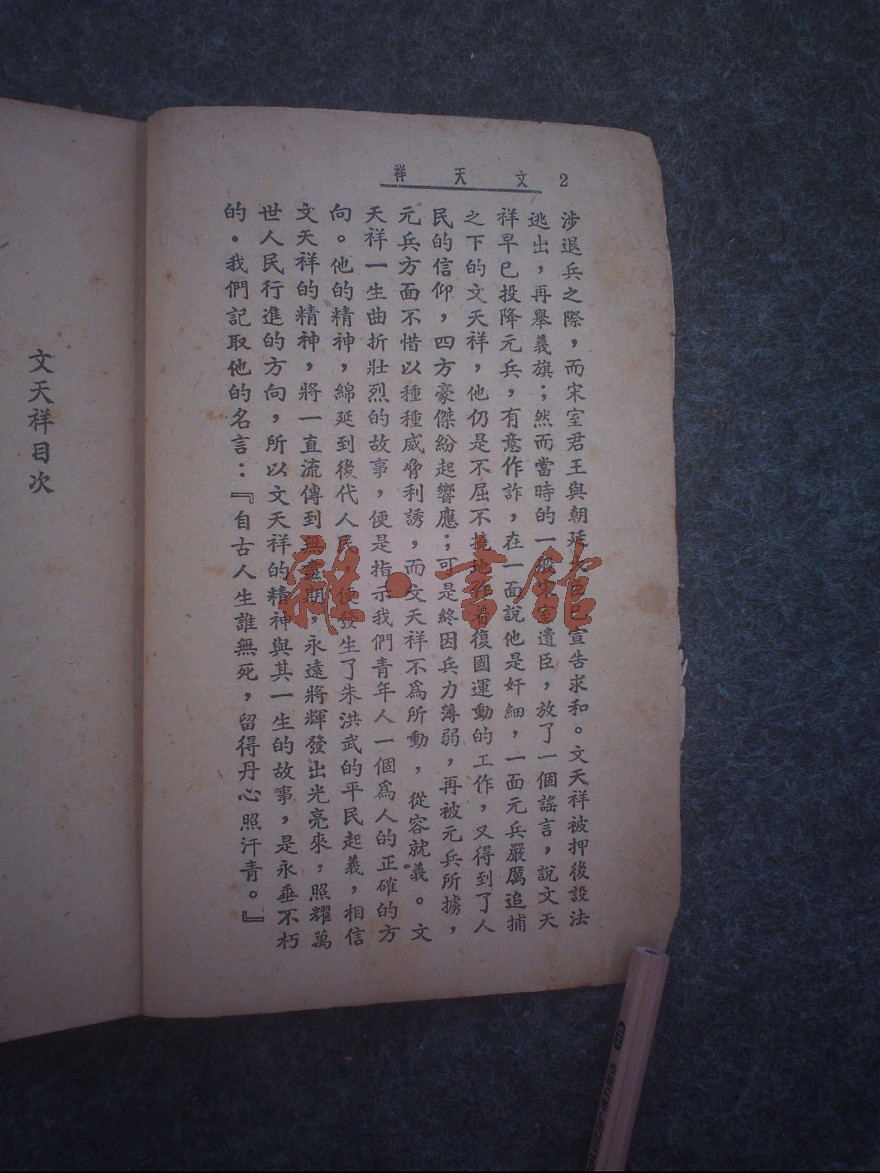 2 文天祥
涉退兵之際，而宋室君王與朝廷
已宣告求和。文天祥被押後設法
逃出，再舉義旗；然而當時的一般宋室遺臣，放了一個謠言，說文天
祥早已投降元兵，有意作詐，在一面說他是奸細，一面元兵嚴厲追捕
之下的文天祥，他仍是不屈不撓地作着復國運動的工作，又得到了人
民的信仰，四方豪傑紛起響應；可是終因兵力薄弱，再被元兵所擄，
元兵方面不惜以種種威脅利誘，而文天祥不爲所動，從容就義。文
天祥一生曲折壯烈的故事，便是指示我們青年人一個爲人的正確的方
向。他的精神，綿延到後代人民，便發生了朱洪武的平民起義，相信
文天祥的精神，將一直流傳到無盡期，永遠將輝發出光亮來，照耀萬
世人民行進的方向，所以文天祥的精神與其一生的故事，是永垂不朽
的。我們記取他的名言：『自古人生誰無死，留得丹心照汗青。』
文天祥目次
雜·書館